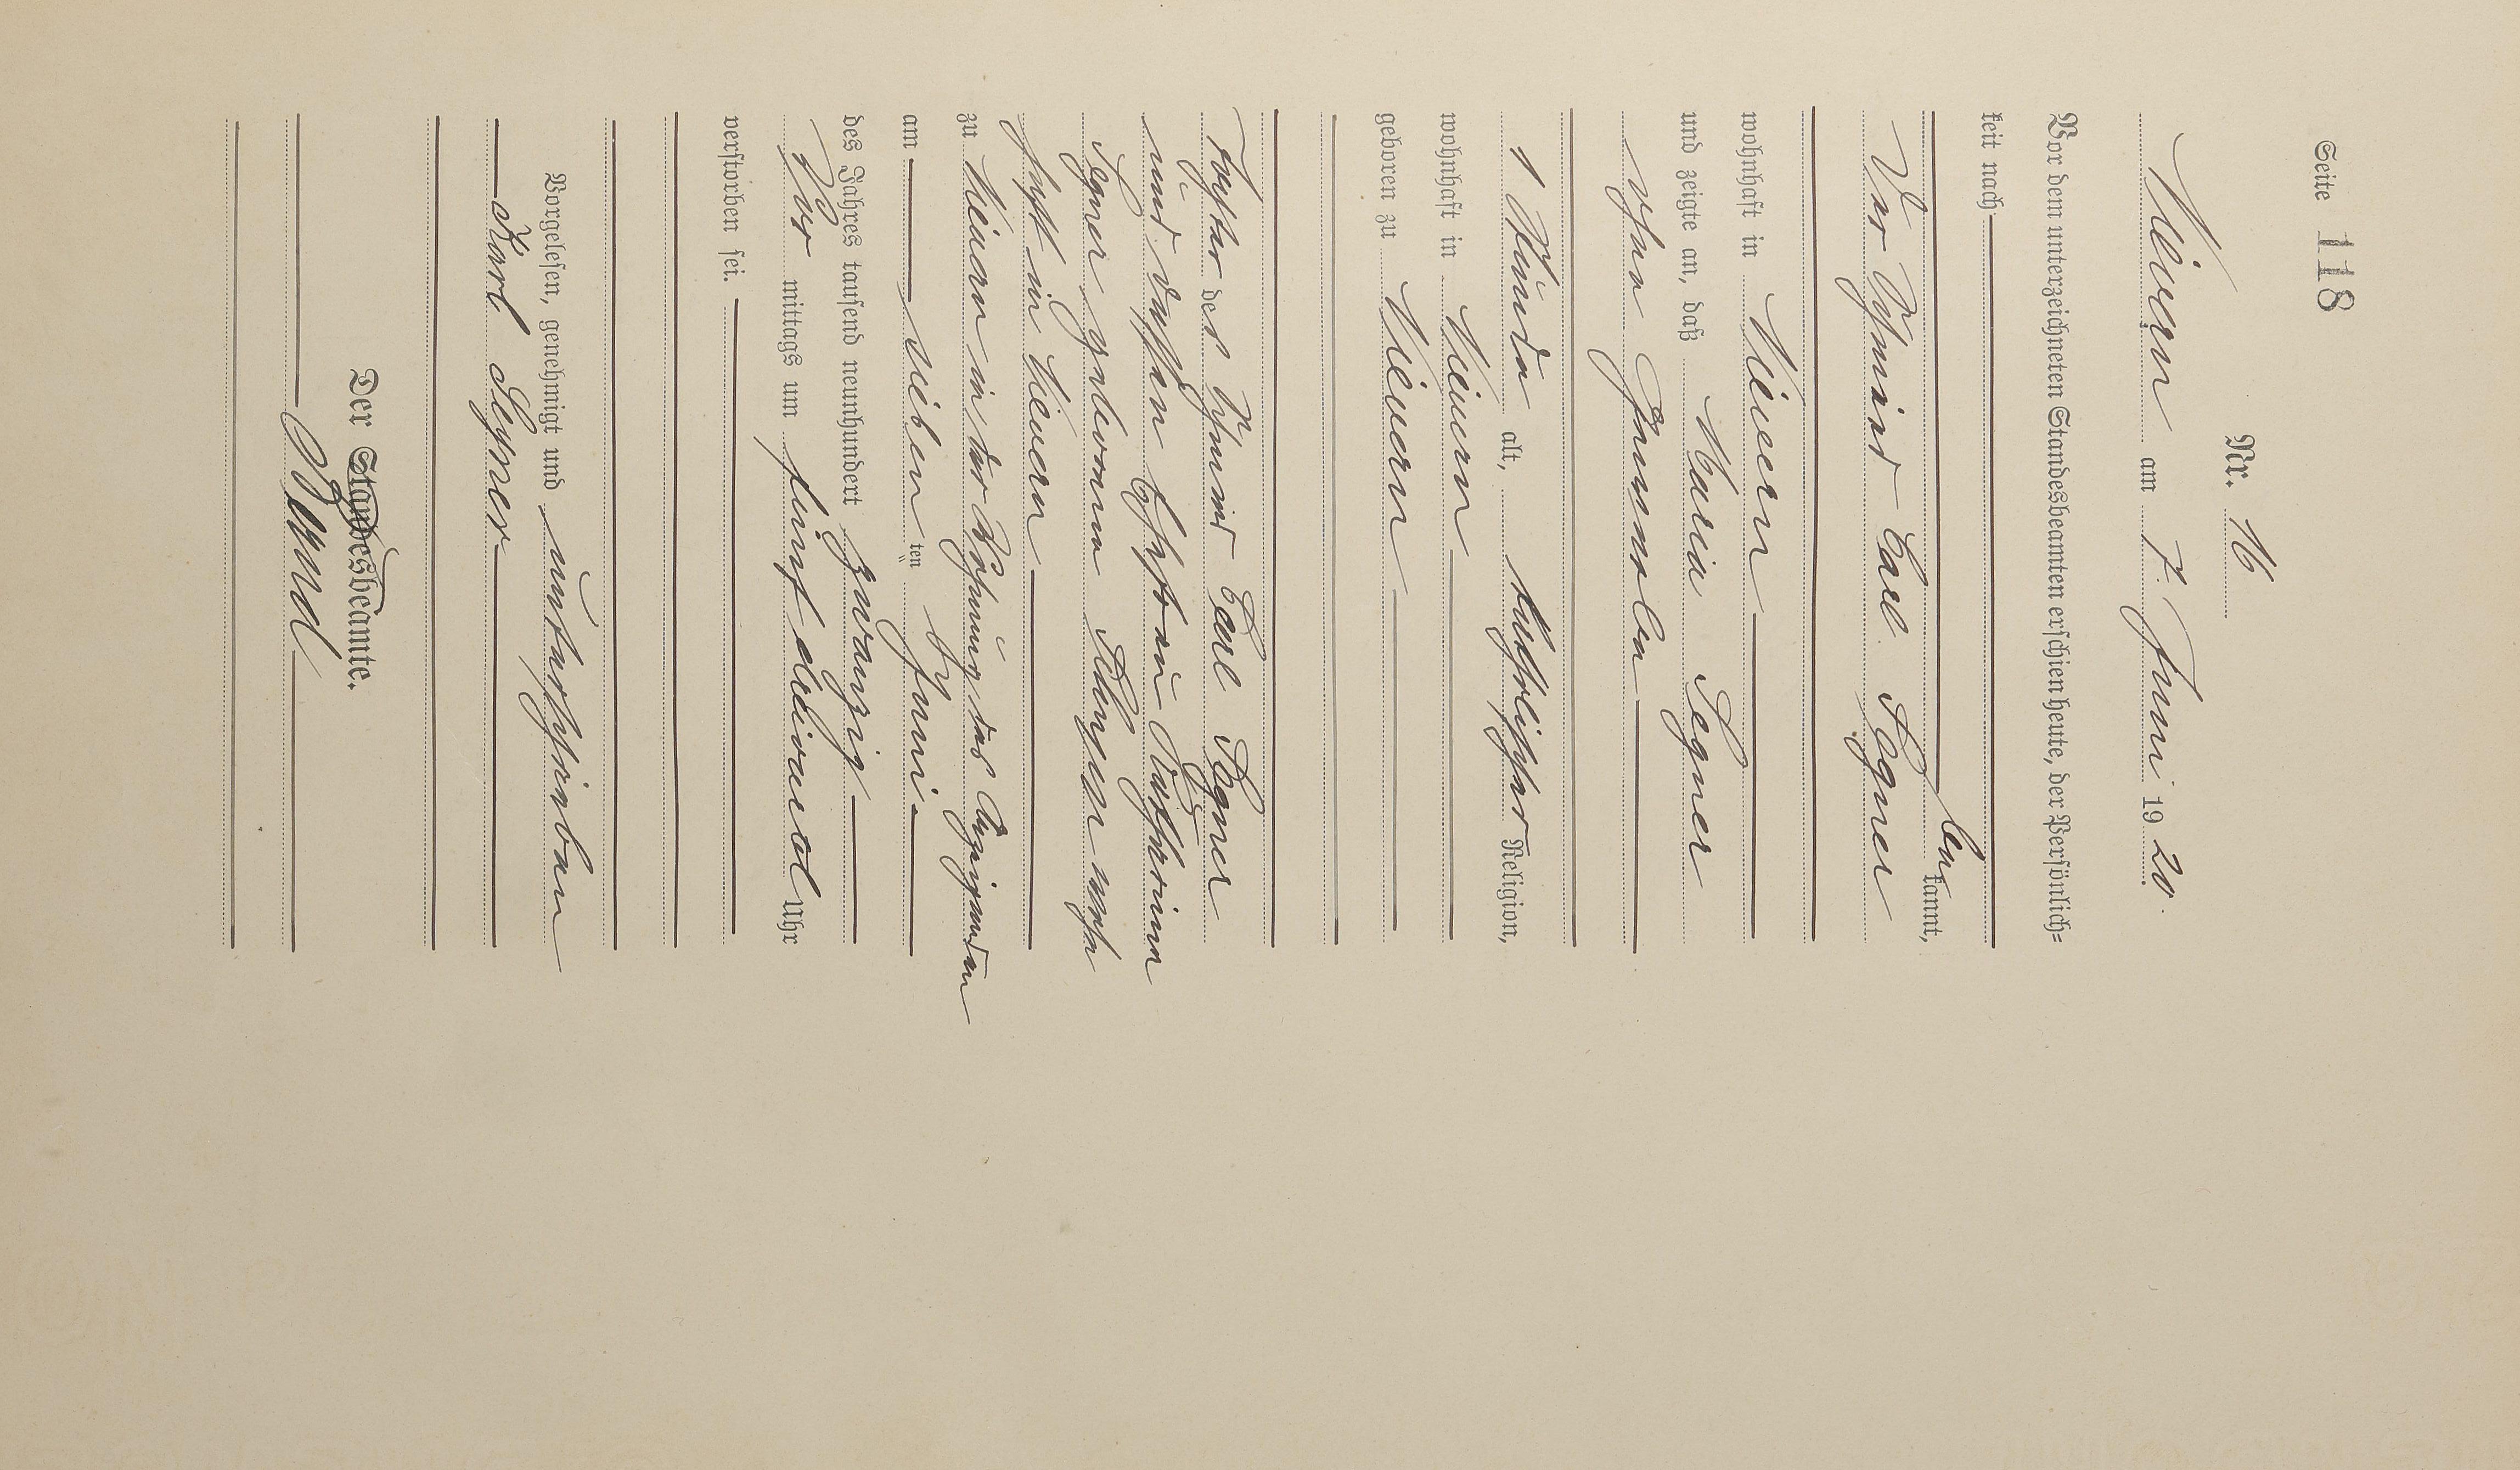 Seite 118
Nr. 16
Nievern am 7. Juni 1920.
Vor dem unterzeichneten Standesbeamten erschien heute, der Persönlich=
keit nach
be kannt,
Der Schmied Carl Segner
wohnhaft in Nievern
und zeigte an, daß Maria Segner
ohne Gewerbe
1 Stunde alt, katholischer Religion,
wohnhaft in Nievern
geboren zu Nievern
Tochter des Schmied Carl Segner
und dessen Ehefrau Katharina
Segner geborene wohn
haft in Nievern
zu Nievern in der Wohnung des Anzeigenden
am sieben ten Juni
des Jahres tausend neunhundert zwanzig
Vor mittags um fünf dreiviertel Uhr
verstorben sei.
Vorgelesen, genehmigt und unterschrieben
Karl Segner
Der Standesbeamte.